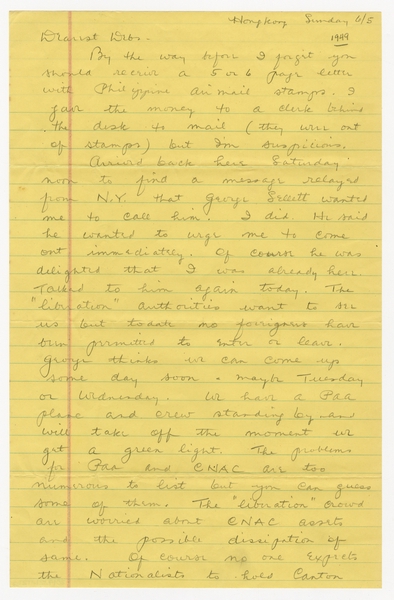 Hongkong Sunday 6/5
1949
Dearest Debs.
By the way before I forget you
should receive a 5 or 6 page letter
with Philippine air mail stamps. I
gave the money to a clerk behind
the desk to mail (they were out
of stamps) but I'm suspicious.
Arrived back here Saturday
noon to find a message relayed
from N.Y. that George Sellett wanted
me to call him. I did. He said
he wanted to urge me to come
out immediately. Of course he was
delighted that I was already here.
Talked to him again today. The
"liberation" authorities want to see
us but to date no foreigners have
been permitted to enter or leave.
George thinks we can come up
some day soon - maybe Tuesday
or Wednesday. We have a Paa
plane and crew standing by and
will take off the moment we
get a green light. The problems
for Paa and CNAC are too
numerous to list but you can guess
some of them. The "liberation" crowd
are worried about CNAC assets
and the possible dissipation of
same. Of course no one expects
the Nationalists to hold Canton